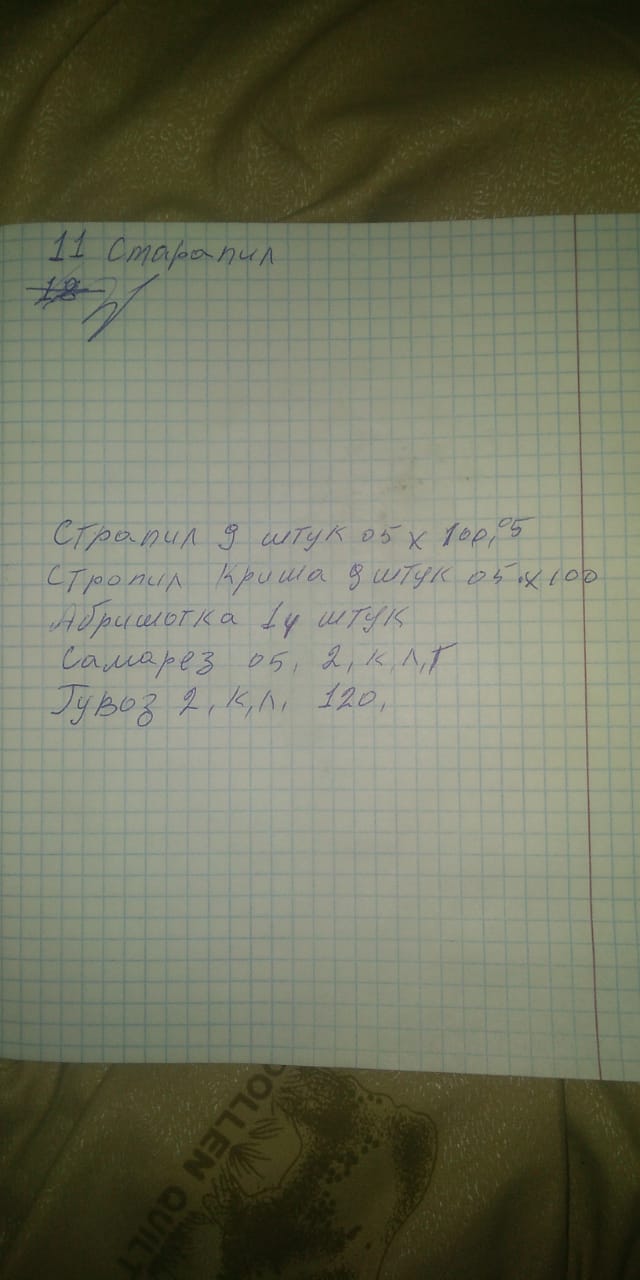 11 Старапил
Страпил 9 штук 05 х 100,05
Стропил Криша 9 штук 05 х 100
Абришотка 14 штук
Самарез 05, 2, к, л, г
Гувоз 2, к, л, 120,
OLLEN QUILT